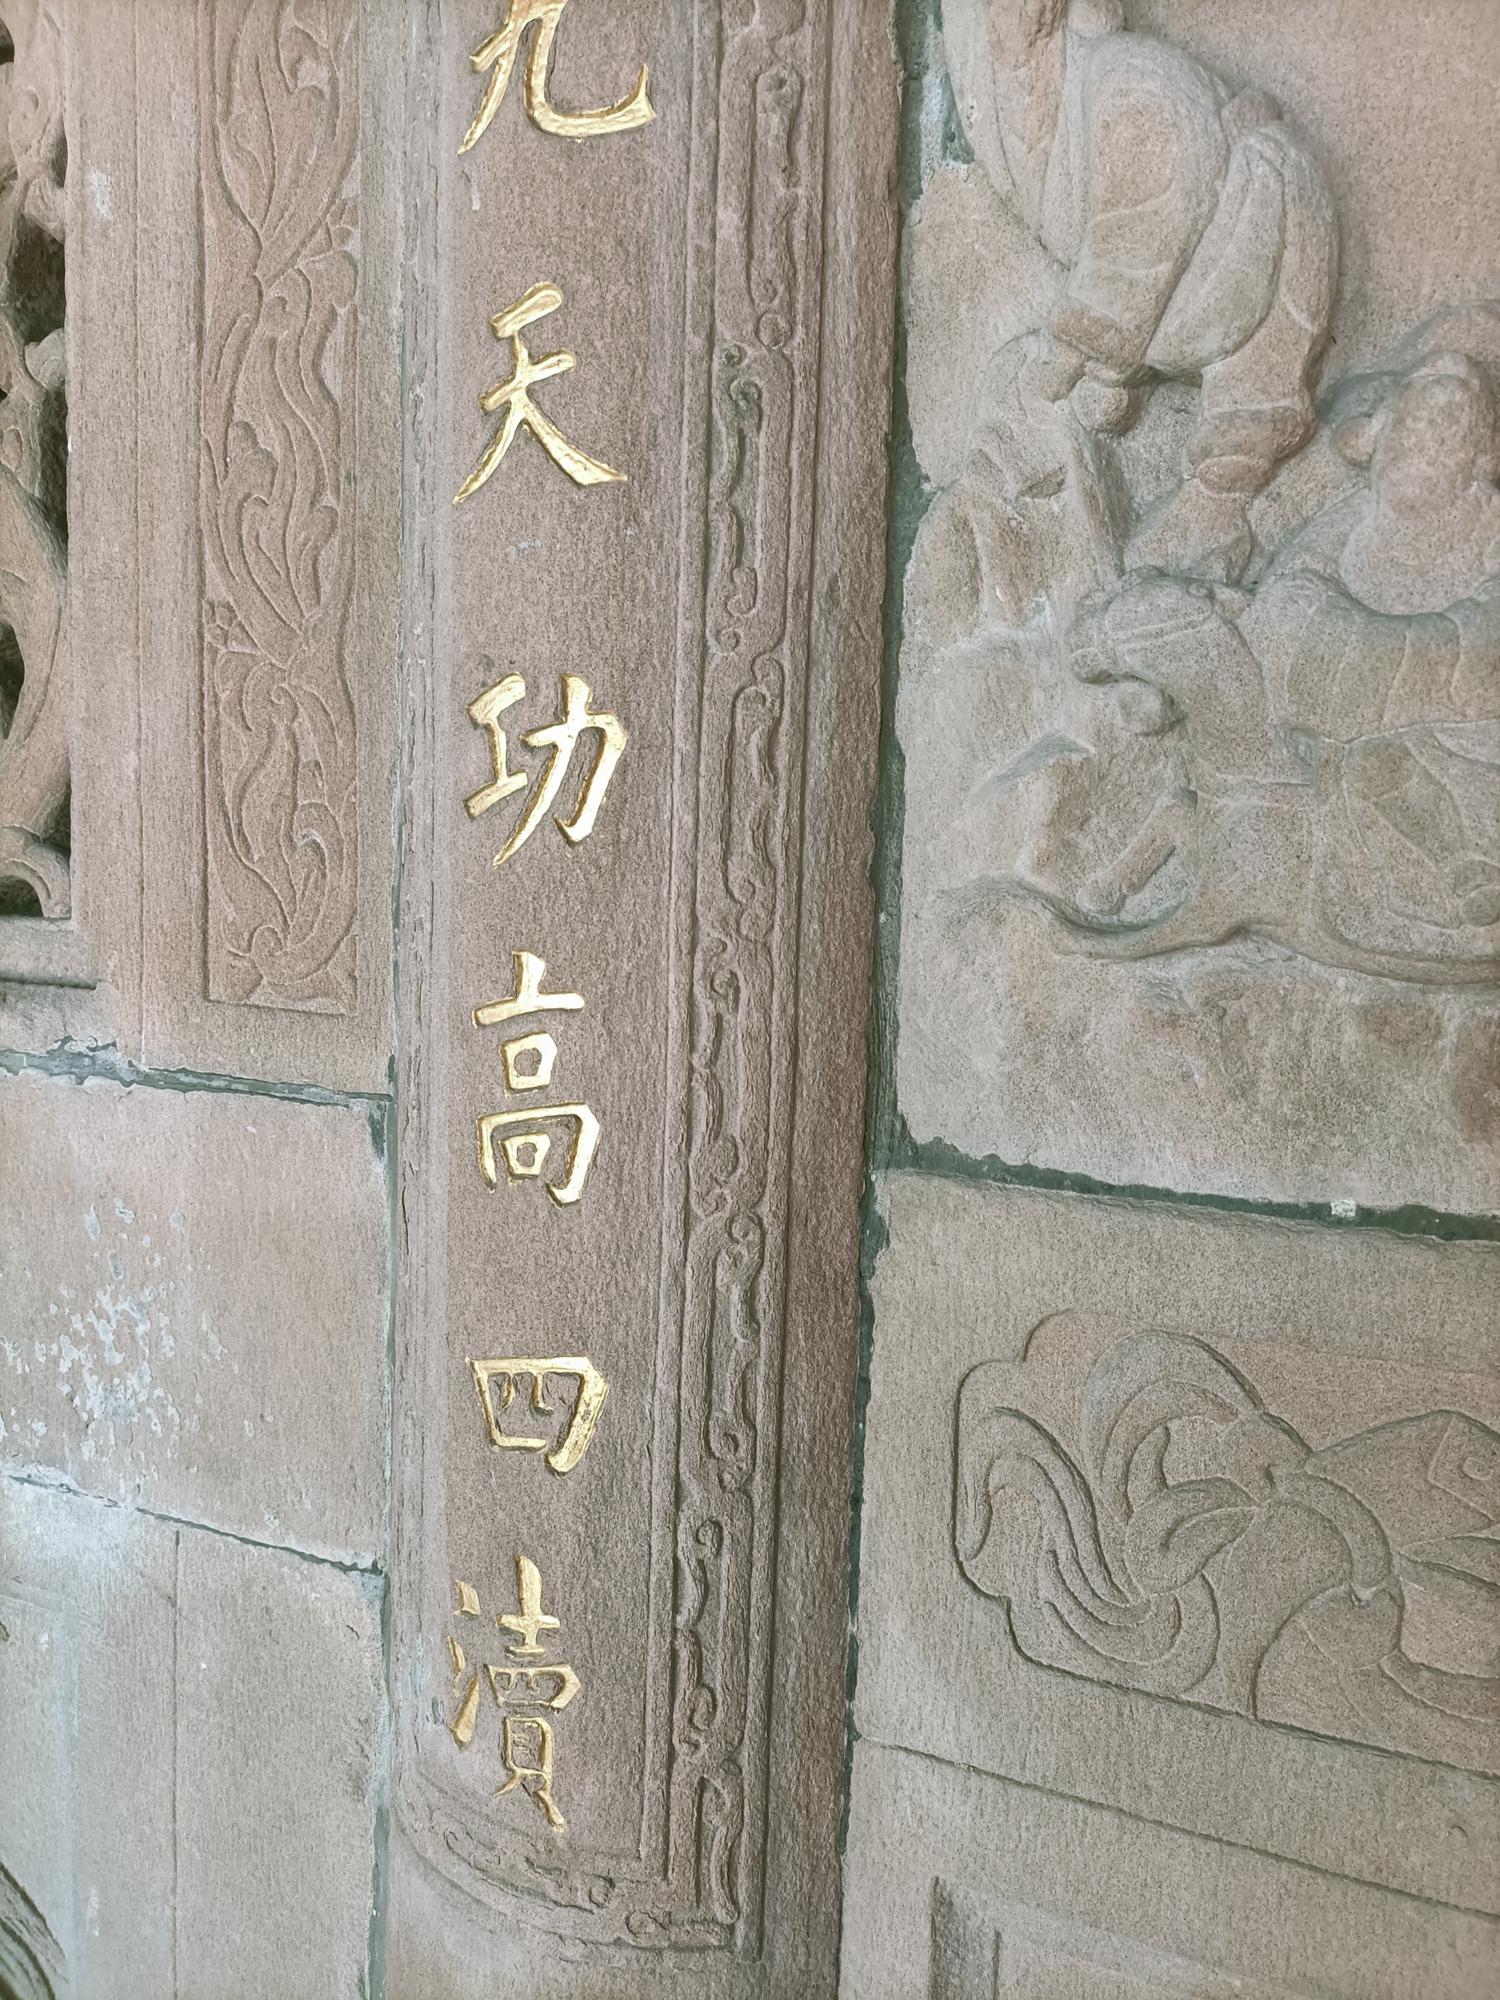 九天功高四瀆